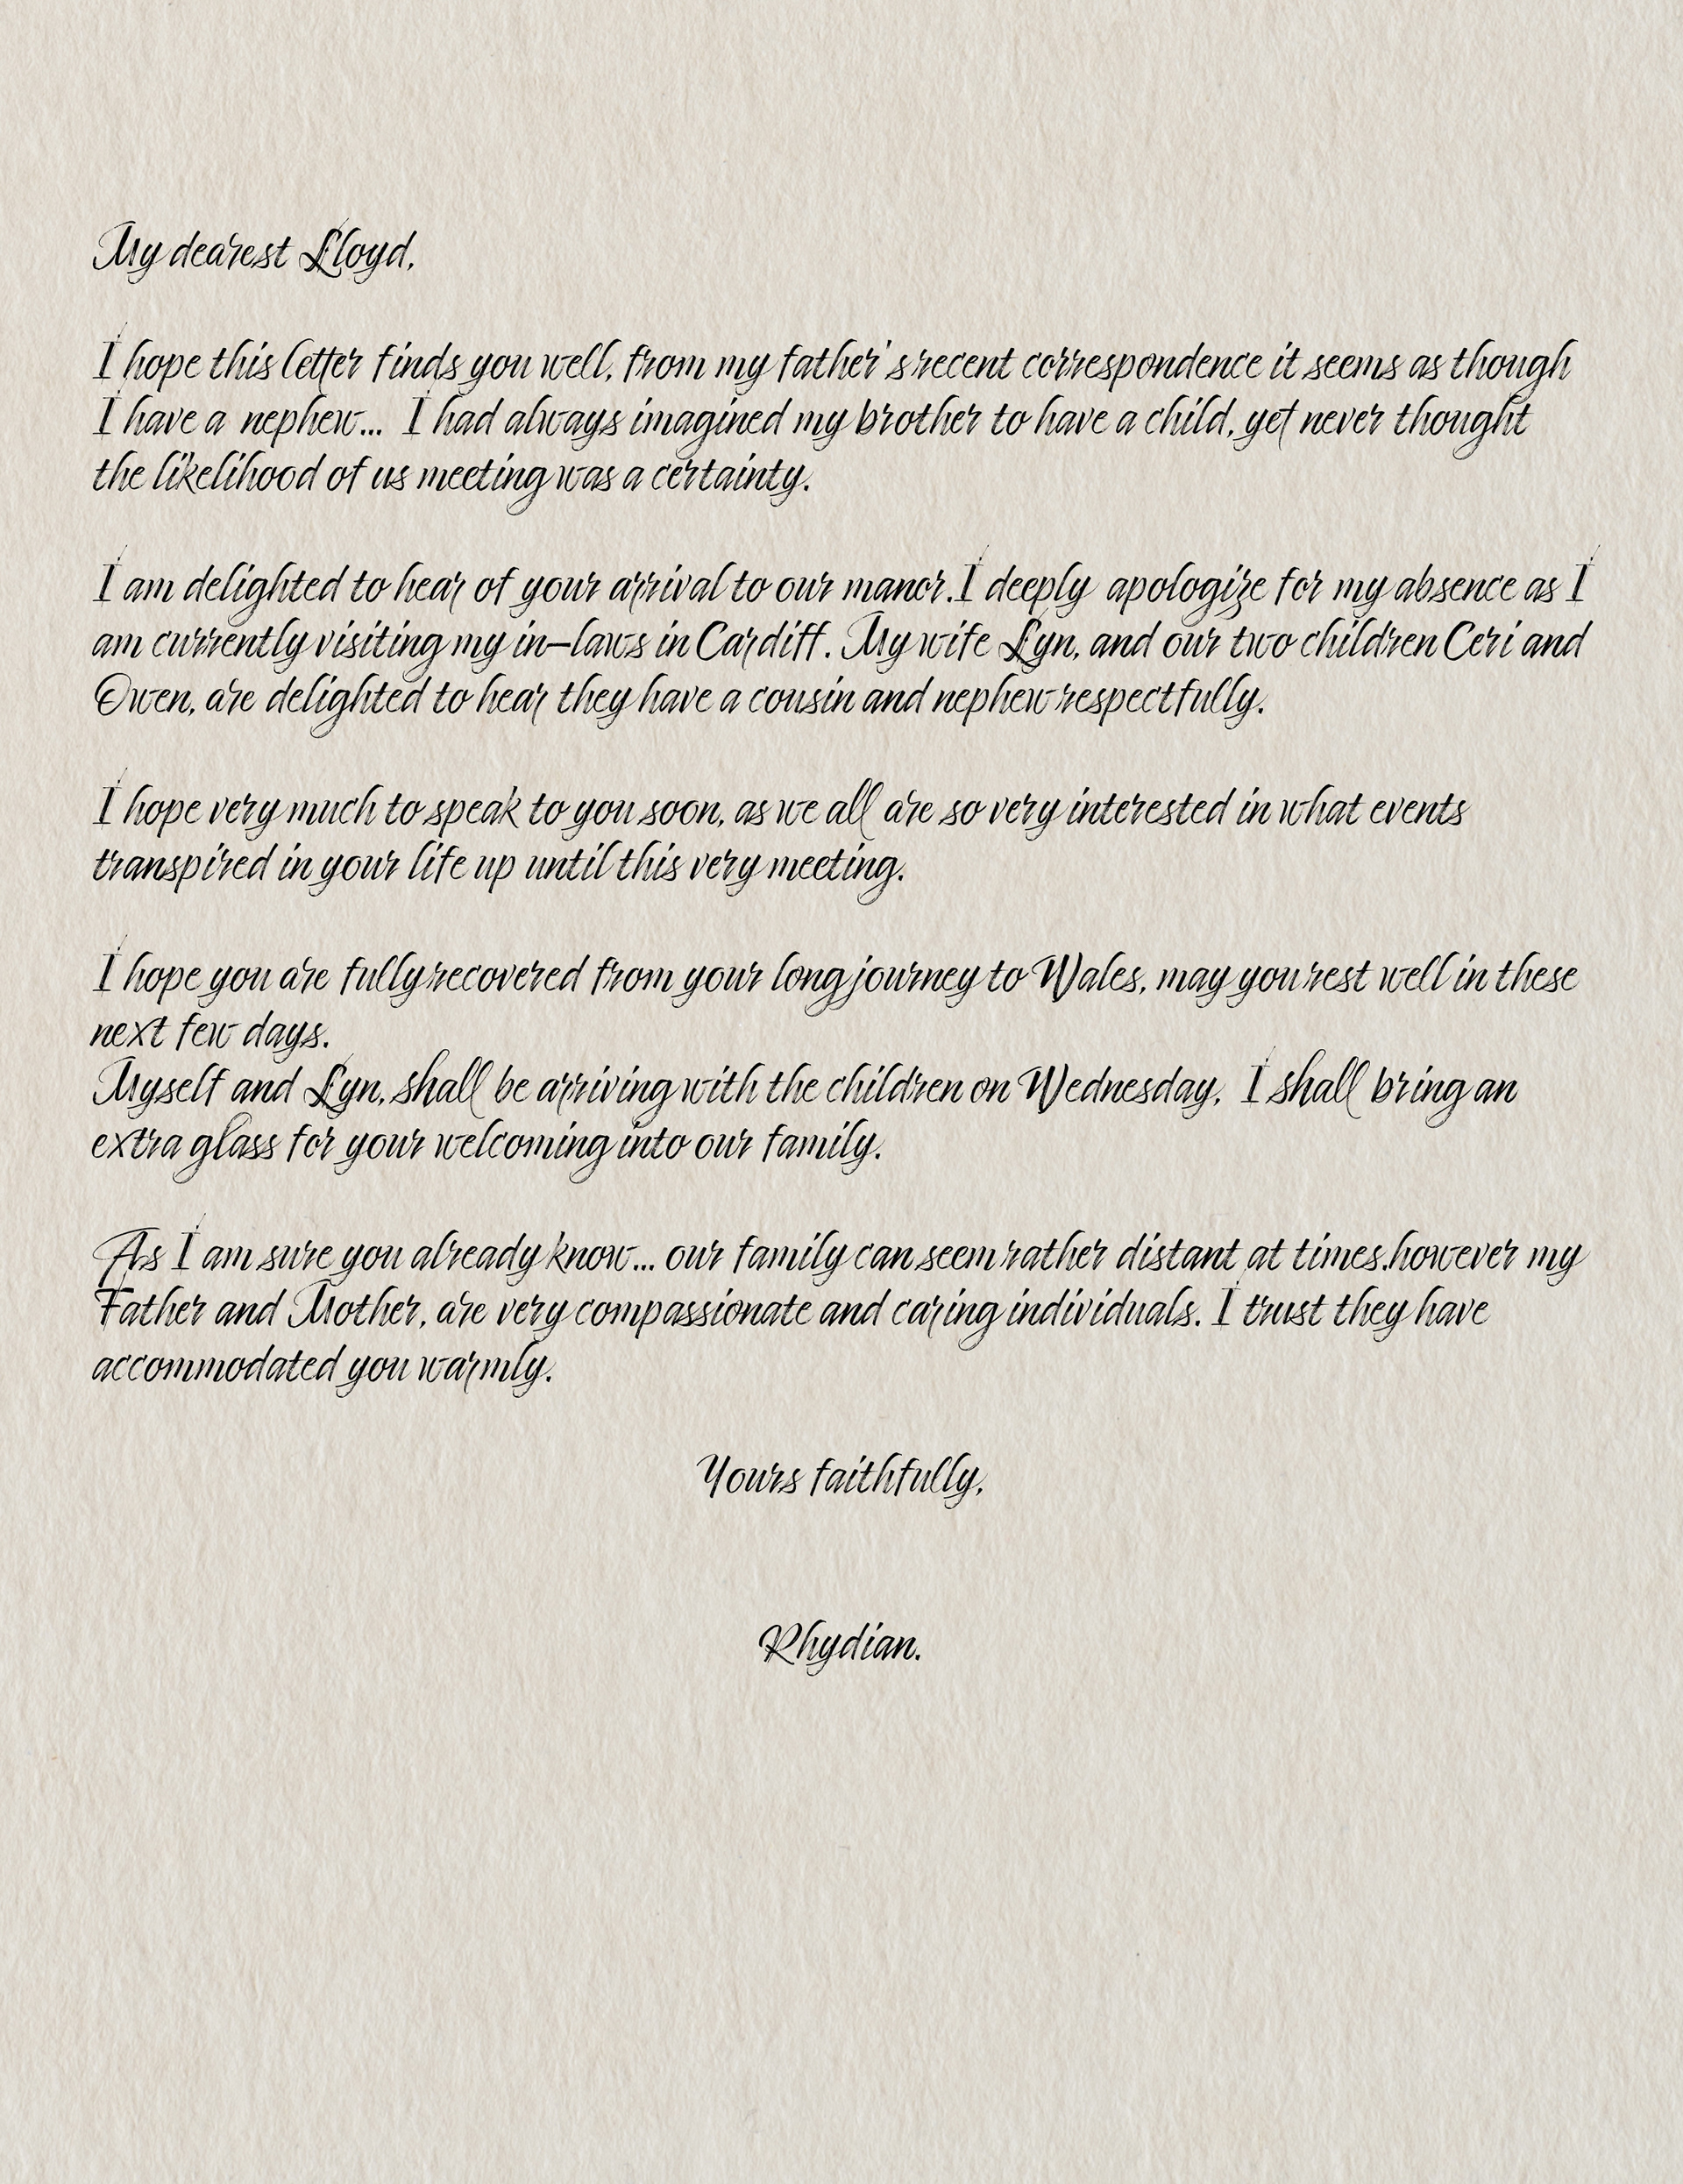 My dearest Lloyd,
I hope this letter finds you well, from my father's recent correspondence it seems as though
I have a nephew... I had always imagined my brother to have a child, yet never thought
the likelihood of us meeting was a certainty.
I am delighted to hear of your arrival to our manor.I deeply apologize for my absence as I
am currently visiting my in-laws in Cardiff. My wife Lyn, and our two children Ceri and
Owen, are delighted to hear they have a cousin and nephew respectfully.
I hope very much to speak to you soon, as we all are so very interested in what events
transpired in your life up until this very meeting.
I hope you are fully recovered from your long journey to Wales, may you rest well in these
next few days.
Myself and Lyn, shall be arriving with the children on Wednesday, I shall bring an
extra glass for your welcoming into our family.
As I am sure you already know... our family can seem rather distant at times.however my
Father and Mother, are very compassionate and caring individuals. I trust they have
accommodated you warmly.
Yours faithfully,
Rhydian.